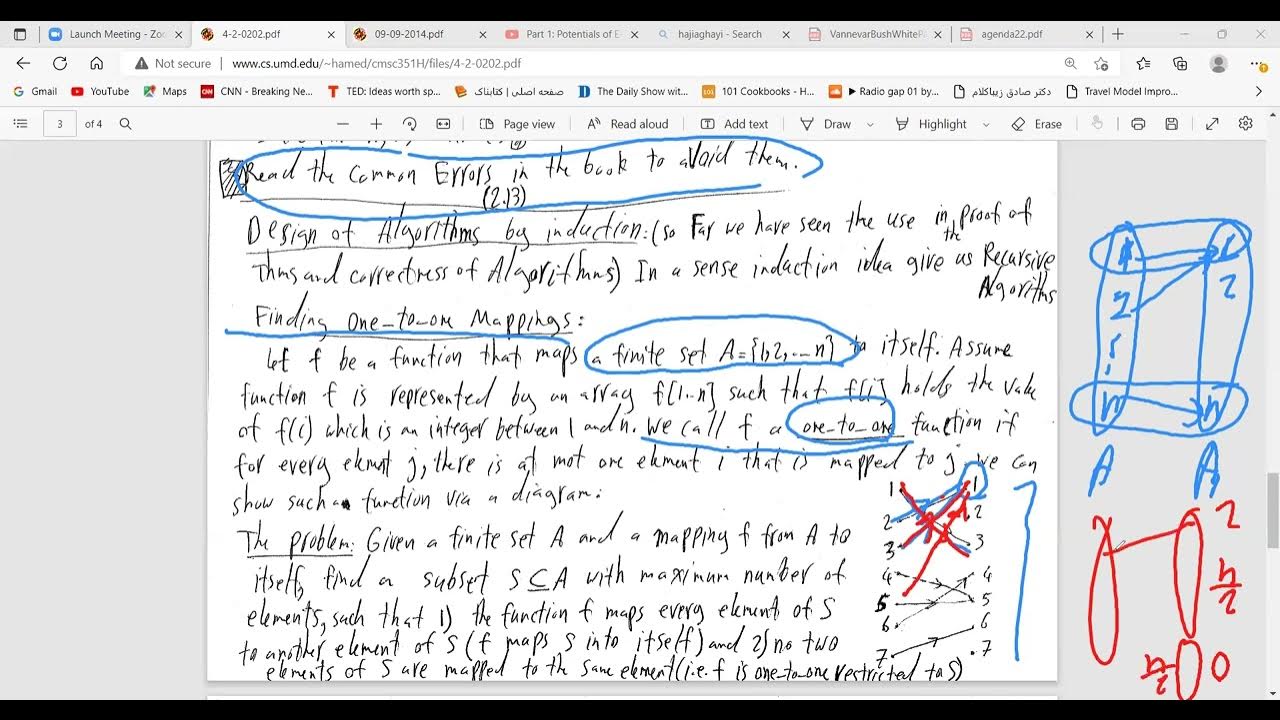 Launch Meeting - Zoo
4-2-0202.pdf
09-09-2014.pdf
Part 1: Potentials of E
hajiaghayi - Search
VannevarBushWhitePa
agenda22.pdf
Not secure
www.cs.umd.edu/~hamed/cmsc351H/files/4-2-0202.pdf
Gmail
YouTube
Maps
CNN - Breaking Ne...
TED: Ideas worth sp...
صفحه اصلی | کتابناک
The Daily Show wit...
101 Cookbooks - H...
Radio gap 01 by...
دکتر صادق زیباکلام
Travel Model Impro...
3 of 4
Page view
Read aloud
Add text
Draw
Highlight
Erase
Read the Common Errors in the book to avoid them.
(2.13)
Design of Algorithms by induction: (so Far we have seen the use in the proof of
thms and correctness of Algorithms) In a sense induction idea give us Recursive
Algorithms
Finding one-to-one Mappings:
let f be a function that maps a finite set A={1,2,...n} to itself. Assume
function f is represented by an array f[1..n] such that f[i] holds the value
of f(i) which is an integer between 1 and n. We call f a one-to-one function if
for every elemnt j, there is at mot one element i that is mapped to j. we can
show such a function via a diagram:
The problem: Given a finite set A and a mapping f from A to
itself, find a subset S⊆A with maximum number of
elements, such that 1) the function f maps every element of S
to another element of S (f maps S into itself) and 2) no two
elements of S are mapped to the same element (i.e. f is one-to-one restricted to S)
1 1
2 2
3 3
4 4
5 5
6 6
7 7
1 1
2 2
n n
A A
2
n/2
n/2 0